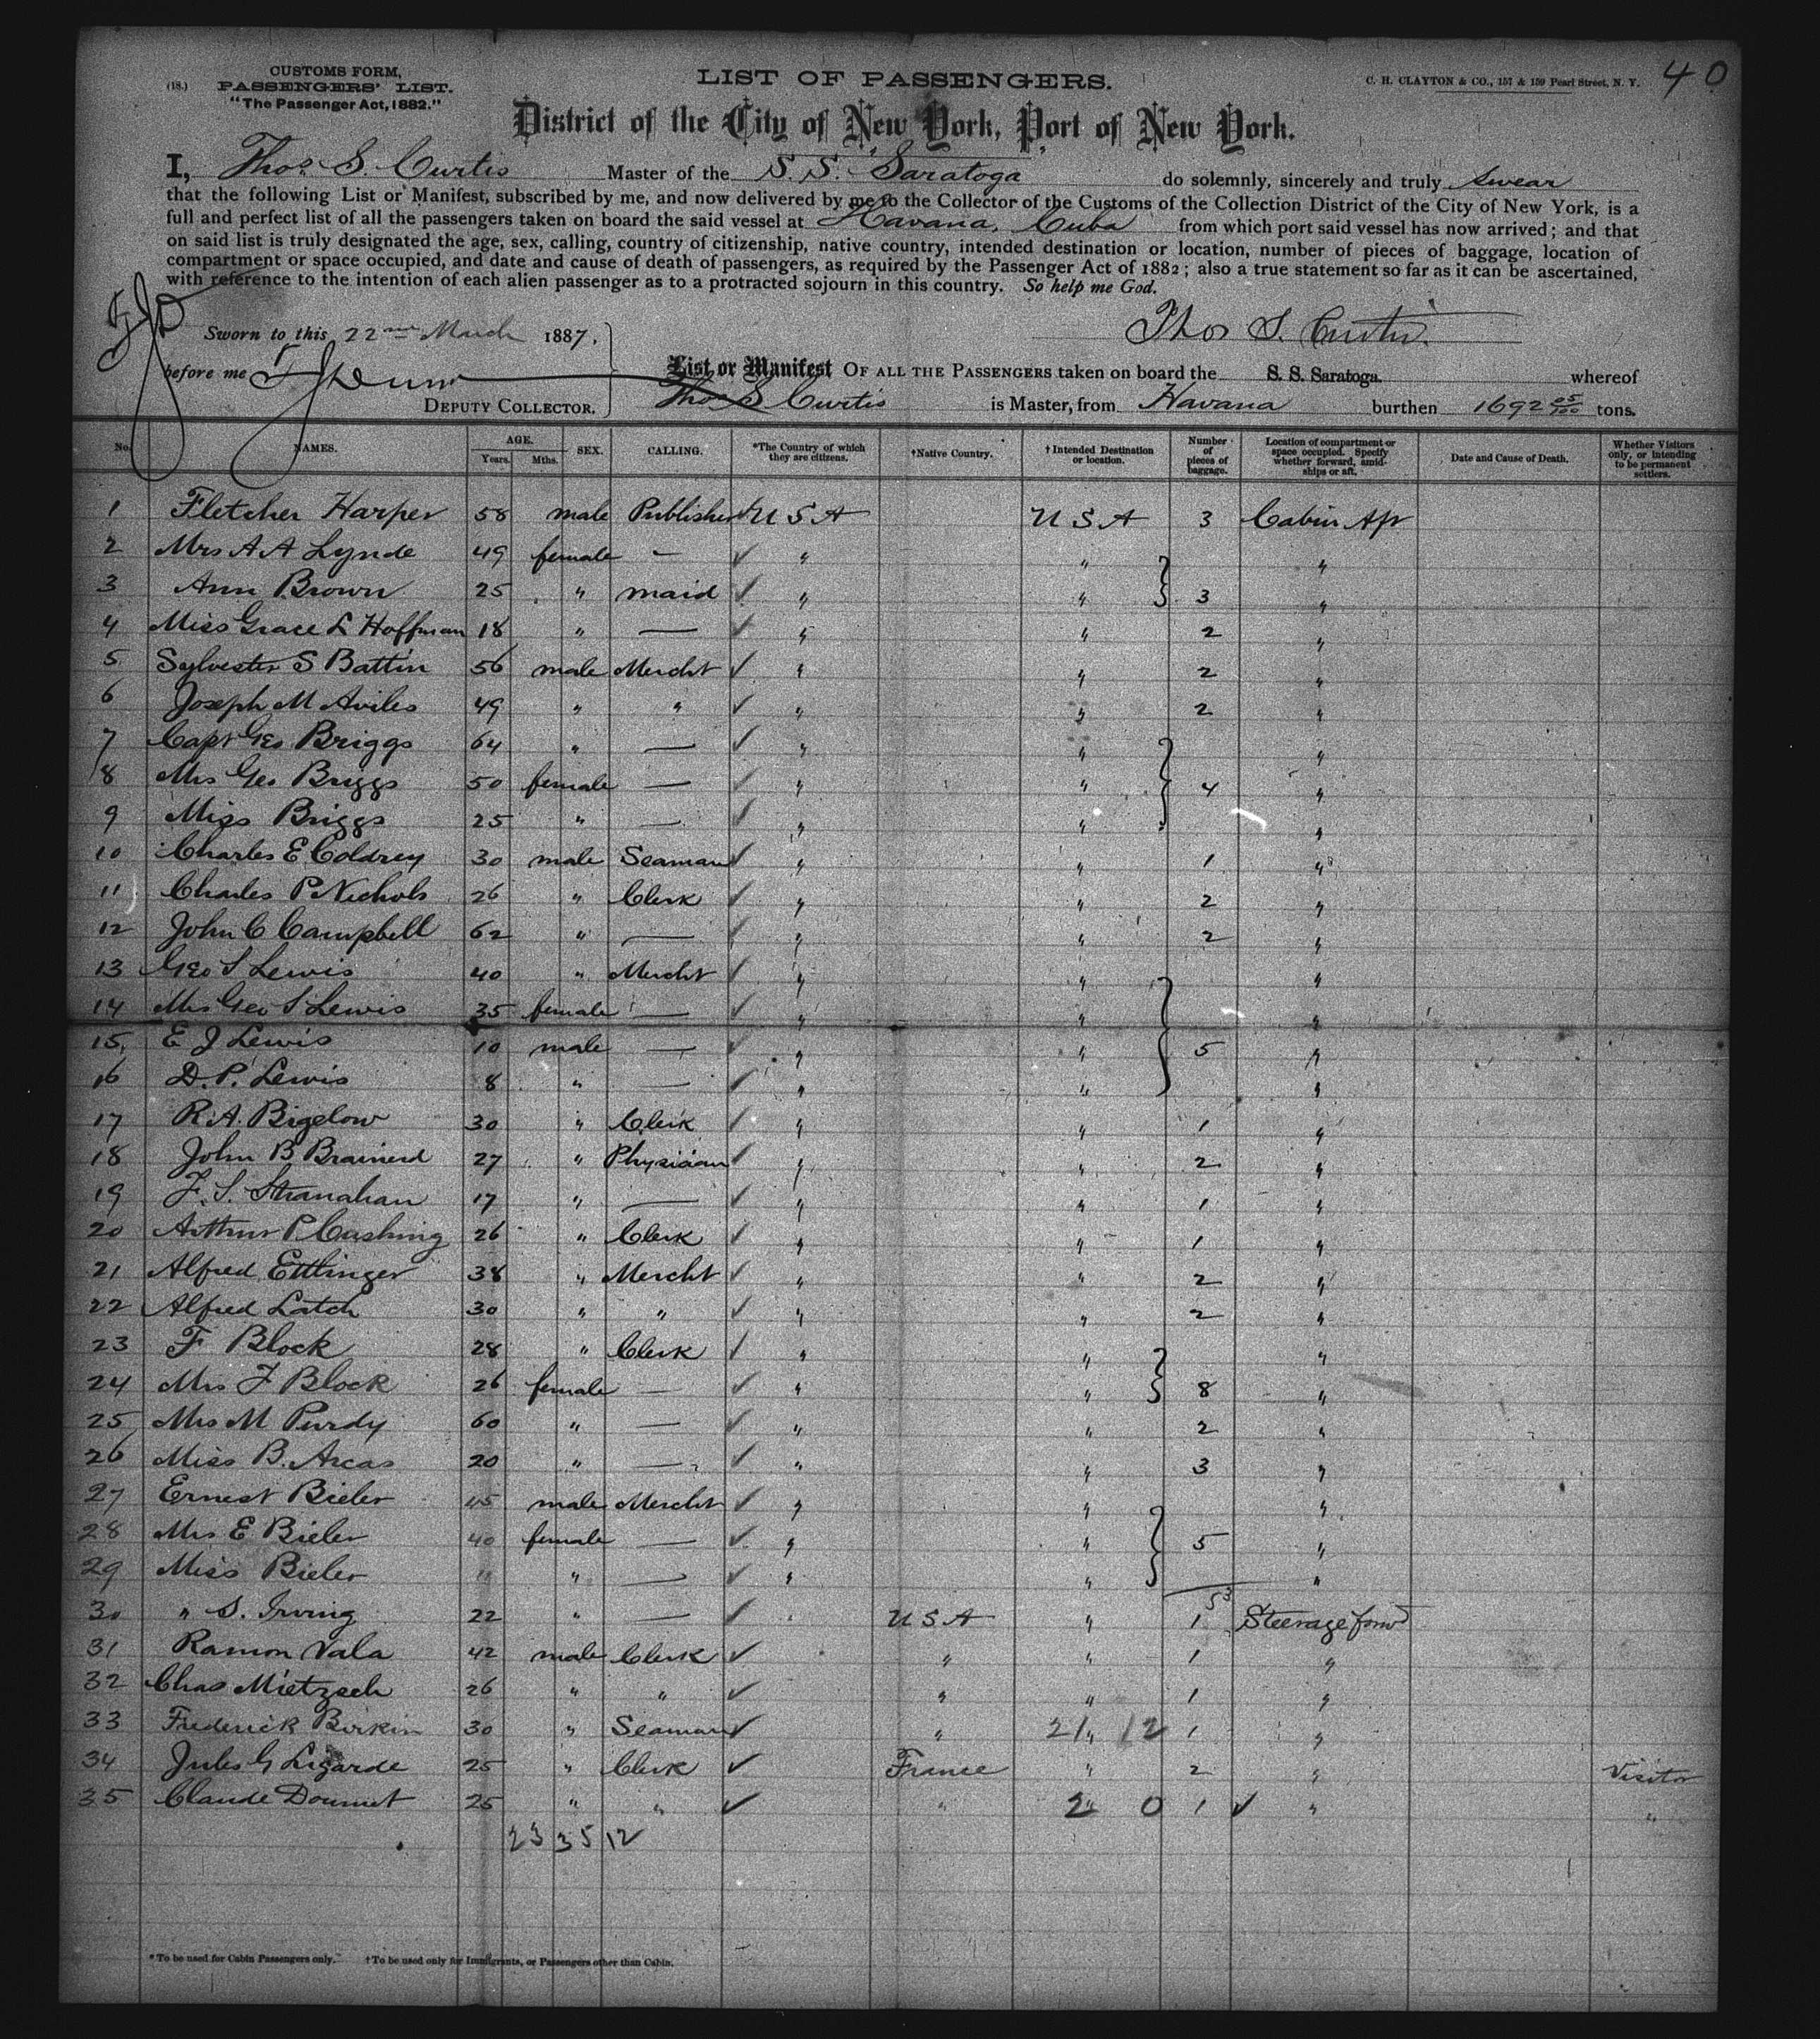 (18.)
CUSTOMS FORM,
PASSENGERS' LIST.
"The Passenger Act, 1882."
LIST OF PASSENGERS.
C. H. CLAYTON & CO., 157 & 159 Pearl Street, N. Y.
40
District of the City of New York, Port of New York.
I, Thos. S. Curtis Master of the S. S. "Saratoga" do solemnly, sincerely and truly swear
that the following List or Manifest, subscribed by me, and now delivered by me to the Collector of the Customs of the Collection District of the City of New York, is a
full and perfect list of all the passengers taken on board the said vessel at Havana, Cuba from which port said vessel has now arrived; and that
on said list is truly designated the age, sex, calling, country of citizenship, native country, intended destination or location, number of pieces of baggage, location of
compartment or space occupied, and date and cause of death of passengers, as required by the Passenger Act of 1882; also a true statement so far as it can be ascertained,
with reference to the intention of each alien passenger as to a protracted sojourn in this country. So help me God.
Sworn to this 22nd March 1887.
Thos S. Curtis.
before me
DEPUTY COLLECTOR.
List or Manifest OF ALL THE PASSENGERS taken on board the S. S. Saratoga. whereof
Thos S Curtis is Master, from Havana burthen 1692 05/100 tons.
No. NAMES. AGE. Years. Mths. SEX. CALLING. *The Country of which they are citizens. †Native Country. †Intended Destination or location. Number of pieces of baggage. Location of compartment or space occupied. Specify whether forward, amidships or aft. Date and Cause of Death. Whether Visitors only, or intending to be permanent settlers.
1 Fletcher Harper 58 male Publisher ✓ U S A U S A 3 Cabin Aft
2 Mrs A A Lynde 49 female — ✓ " " "
3 Ann Brown 25 " maid ✓ " " 3 "
4 Miss Grace L Hoffman 18 " — ✓ " " 2 "
5 Sylvester S Battin 56 male Mercht ✓ " " 2 "
6 Joseph M Aviles 49 " " ✓ " " 2 "
7 Capt Geo Briggs 64 " — ✓ " " "
8 Mrs Geo Briggs 50 female — ✓ " " 4 "
9 Miss Briggs 25 " — ✓ " " "
10 Charles E Coldrey 30 male Seaman ✓ " " 1 "
11 Charles P Nichols 26 " Clerk ✓ " " 2 "
12 John C Campbell 62 " — ✓ " " 2 "
13 Geo S Lewis 40 " Mercht ✓ " " "
14 Mrs Geo S Lewis 35 female — ✓ " " "
15. E J Lewis 10 male — ✓ " " 5 "
16 D. P. Lewis 8 " — ✓ " " "
17 R. A. Bigelow 30 " Clerk ✓ " " 1 "
18 John B Brainerd 27 " Physician ✓ " " 2 "
19 F. S. Stranahan 17 " — ✓ " " 1 "
20 Arthur P Cushing 26 " Clerk ✓ " " 1 "
21 Alfred Ettlinger 38 " Mercht ✓ " " 2 "
22 Alfred Latch 30 " " ✓ " " 2 "
23 F Block 28 " Clerk ✓ " " "
24 Mrs F Block 26 female — ✓ " " 8 "
25 Mrs M Purdy 60 " — ✓ " " 2 "
26 Miss B. Arcas 20 " — ✓ " " 3 "
27 Ernest Bieler 45 male Mercht ✓ " " "
28 Mrs E Bieler 40 female — ✓ " " 5 "
29 Miss Bieler " — ✓ " " "
53
30 " S. Irving 22 " — ✓ U S A " 1 Steerage forwd
31 Ramon Vala 42 male Clerk ✓ " " 1 "
32 Chas Mietzsch 26 " " ✓ " " 1 "
33 Frederick Birkin 30 " Seaman ✓ " 21 " 12 1 "
34 Jules G Ligarde 25 " Clerk ✓ France " 2 " Visitor
35 Claude Doumet 25 " " ✓ " 2 " 0 1 ✓ " "
23 35 12
*To be used for Cabin Passengers only. †To be used only for Immigrants, or Passengers other than Cabin.